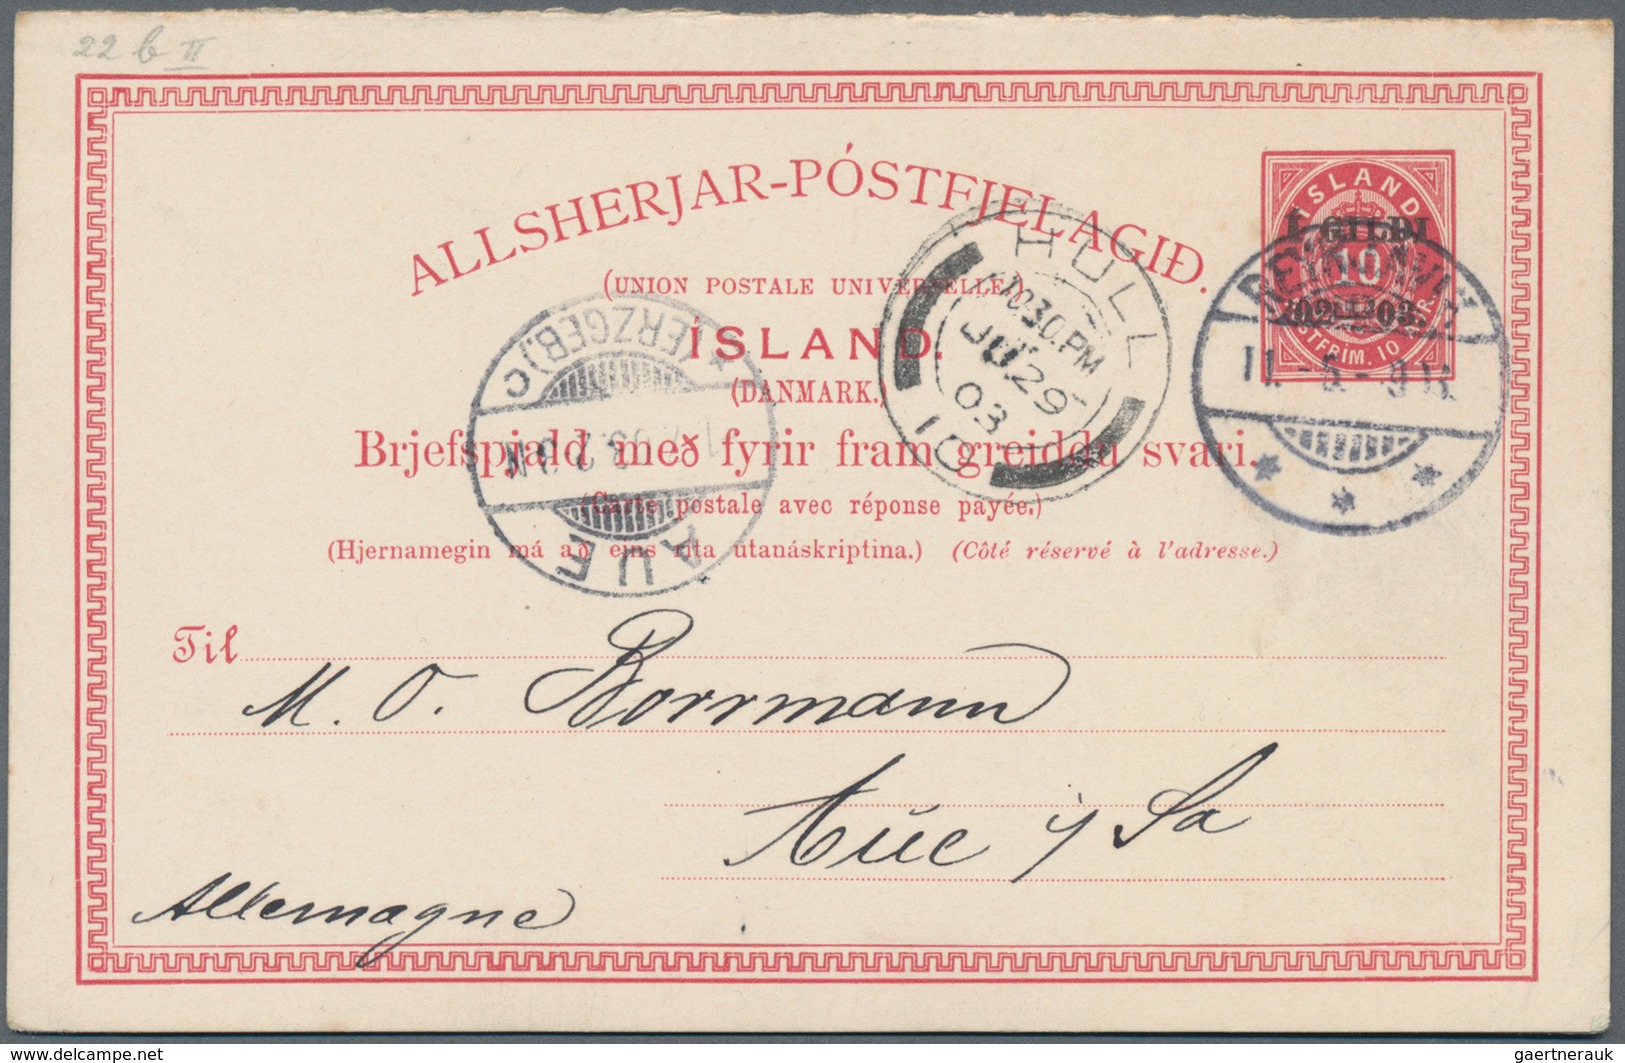 22 b II
ALLSHERJAR-PÓSTFJELAGIÐ.
(UNION POSTALE UNIVERSELLE.)
ÍSLAND.
(DANMARK.)
Brjefspjald með fyrir fram greiddu svari.
(Carte postale avec réponse payée.)
(Hjernamegin má að eins rita utanáskriptina.) (Côté réservé à l'adresse.)
ÍSLAND
Í GILDI
10
'02-'03.
FRIM. 10
HULL
10.30.PM
JU 29
03
10
11.-5.-
AUE
(ERZGEB.) c
Til
M. O. Borrmann
Aue i/ Sa
Allemagne
www.delcampe.net
gaertnerauk